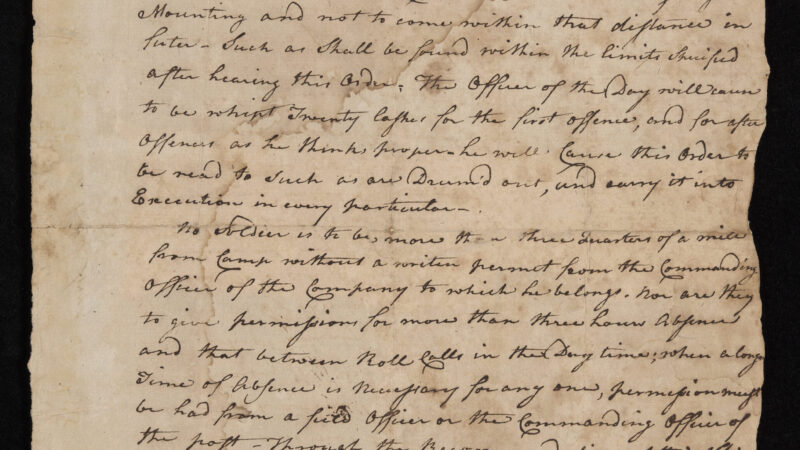 Mounting and not to come within that distance in
futer – Such as Shall be found within the limits Specified
after hearing this Order, The Officer of the Day will caus
to be whipt Twenty lashes for the first offence, and for after
Offences as he think proper – he will Cause this Order to
be read to Such as are Drum'd out, and carry it into
Execution in every particular –
No Soldier is to be more th n three Quarters of a mile
from Camp without a writen permit from the Commanding
Officer of the Company to which he belongs. Nor are they
to give permissions for more than three hours Absence
and that between Roll Calls in the Day time; when a longer
Time of Absence is Necessary for any one, permission must
be had from a field Officer or the Commanding Officer of
the post – Through the